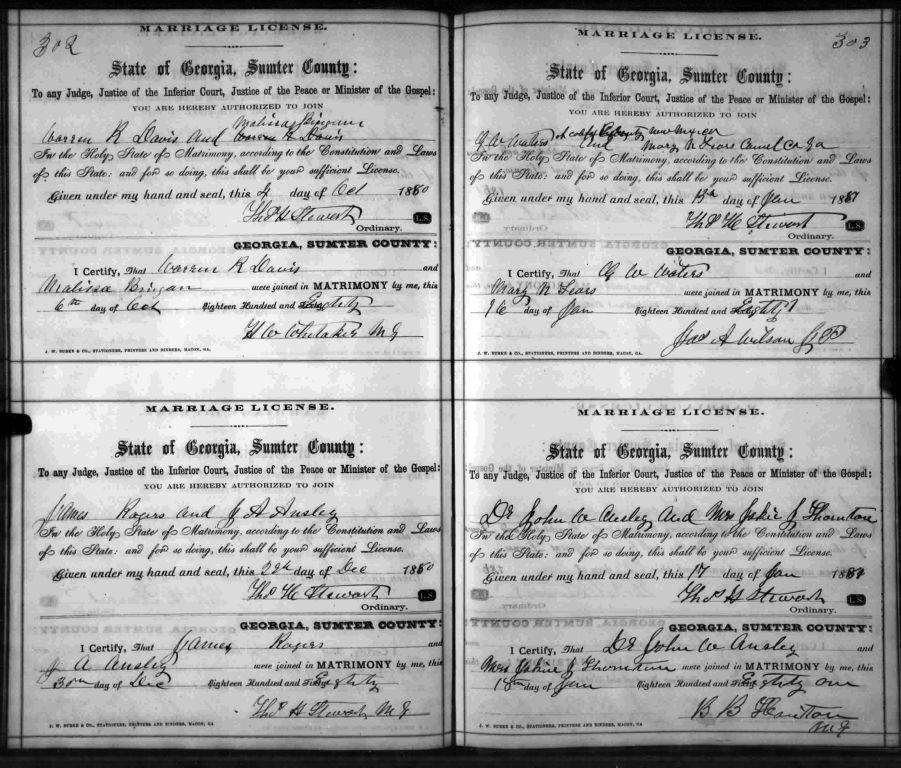 302
MARRIAGE LICENSE.
State of Georgia, Sumter County:
To any Judge, Justice of the Inferior Court, Justice of the Peace or Minister of the Gospel:
YOU ARE HEREBY AUTHORIZED TO JOIN
Malissa
Warren R Davis and Warren R Davis
In the Holy State of Matrimony, according to the Constitution and Laws
of this State: and for so doing, this shall be your sufficient License.
Given under my hand and seal, this 4 day of Oct 1880
Thos H Stewart L.S.
Ordinary.
GEORGIA, SUMTER COUNTY:
I Certify, That Warren R Davis and
Malissa were joined in MATRIMONY by me, this
6th day of Oct Eighteen Hundred and Eighty
H W Whitaker M G
J. W. BURKE & CO., STATIONERS, PRINTERS AND BINDERS, MACON, GA.
MARRIAGE LICENSE.
State of Georgia, Sumter County:
To any Judge, Justice of the Inferior Court, Justice of the Peace or Minister of the Gospel:
YOU ARE HEREBY AUTHORIZED TO JOIN
James Rogers and J A Ansley
In the Holy State of Matrimony, according to the Constitution and Laws
of this State: and for so doing, this shall be your sufficient License.
Given under my hand and seal, this day of Dec 1880
Thos H Stewart L.S.
Ordinary.
GEORGIA, SUMTER COUNTY:
I Certify, That James Rogers and
J A Ansley were joined in MATRIMONY by me, this
30th day of Dec Eighteen Hundred and Eighty
Thos H Stewart M G
J. W. BURKE & CO., STATIONERS, PRINTERS AND BINDERS, MACON, GA
303
MARRIAGE LICENSE.
State of Georgia, Sumter County:
To any Judge, Justice of the Inferior Court, Justice of the Peace or Minister of the Gospel:
YOU ARE HEREBY AUTHORIZED TO JOIN
of County New Mexico
G W Waters and Mary N Sears Ga
In the Holy State of Matrimony, according to the Constitution and Laws
of this State: and for so doing, this shall be your sufficient License.
Given under my hand and seal, this 13th day of Jan 1881
Thos H Stewart L.S.
Ordinary.
GEORGIA, SUMTER COUNTY:
I Certify, That G W Waters and
Mary N Sears were joined in MATRIMONY by me, this
16 day of Jan Eighteen Hundred and Eighty 1
Jas A Wilson J P
J. W. BURKE & CO., STATIONERS, PRINTERS AND BINDERS, MACON, GA.
MARRIAGE LICENSE.
State of Georgia, Sumter County:
To any Judge, Justice of the Inferior Court, Justice of the Peace or Minister of the Gospel:
YOU ARE HEREBY AUTHORIZED TO JOIN
Dr John W Ansley and Mrs J Thornton
In the Holy State of Matrimony, according to the Constitution and Laws
of this State: and for so doing, this shall be your sufficient License.
Given under my hand and seal, this 17 day of Jan 1881
Thos H Stewart L.S.
Ordinary.
GEORGIA, SUMTER COUNTY:
I Certify, That Dr John W Ansley and
Mrs J Thornton were joined in MATRIMONY by me, this
18th day of Jan Eighteen Hundred and Eighty one
B B
M G
J. W. BURKE & CO., STATIONERS, PRINTERS AND BINDERS, MACON, GA.